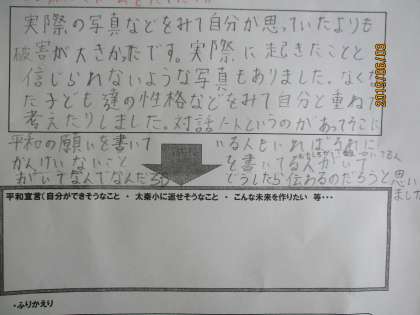 実際の写真などをみて自分が思っていたよりも
被害が大きかったです。実際に起きたことと
信じられないような写真もありました。なくなっ
た子ども達の性格などをみて自分と重ねて
考えたりしました。対話ノートというのがあってそこに
平和の願いを書いて いる人もいればそれに
かんけいないこと を書いてる人がいて
かいてなんでなんだろう どうしたら伝わるのだろうと思い
ました
平和宣言(自分ができそうなこと ・ 太秦小に返せそうなこと ・ こんな未来を作りたい 等・・・
・ふりかえり